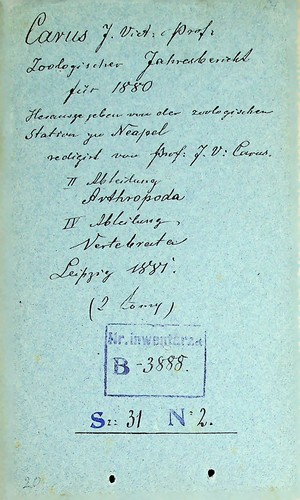 Carus J. Vict: Prof:
Zoologischer Jahresbericht
für 1880
Herausgegeben von der zoologischen
Station zu Neapel
redigirt von Prof: J. V: Carus.
II Abteilung
Arthropoda
IV Abteilung
Vertebrata
Leipzig 1881.
(2 tomy)
Nr. inwentarza
B - 3888.
S: 31 N 2.
20